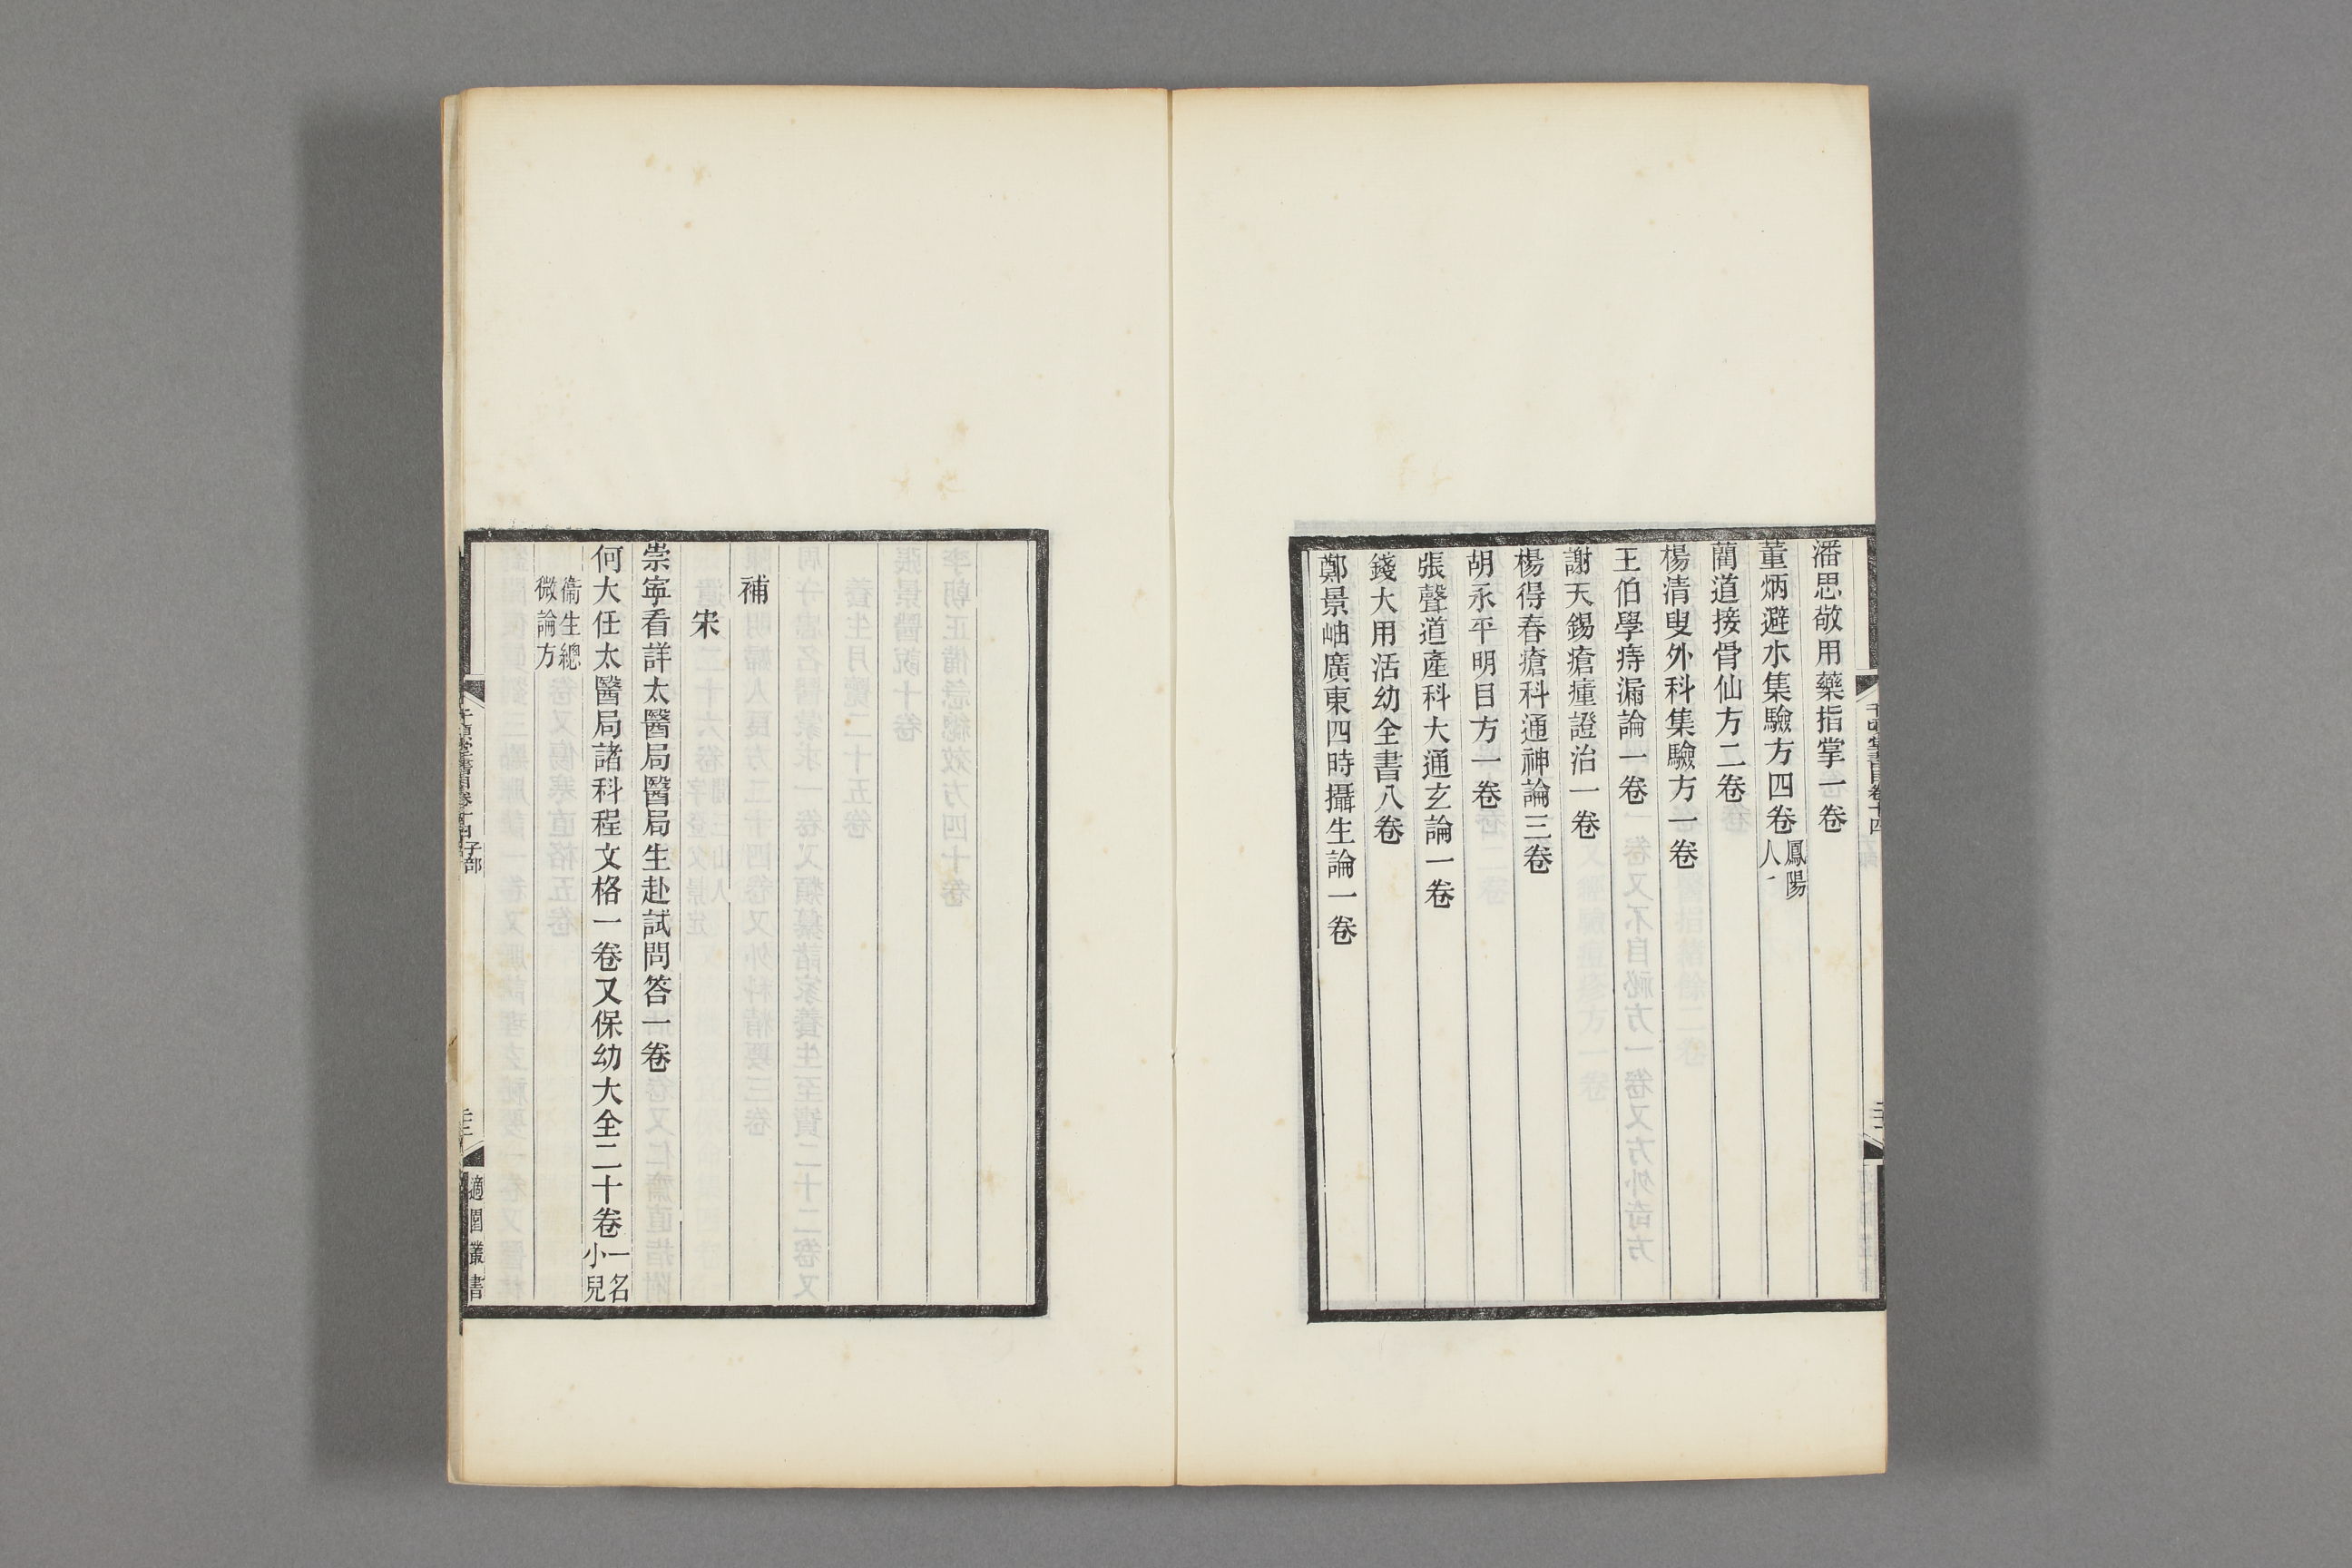 潘思敬用藥指掌一卷
董炳避水集驗方四卷鳳陽人
藺道接骨仙方二卷
楊清叟外科集驗方一卷
王伯學痔漏論一卷
謝天錫瘡瘇證治一卷
楊得春瘡科通神論三卷
胡永平明目方一卷
張聲道產科大通玄論一卷
錢大用活幼全書八卷
鄭景岫廣東四時攝生論一卷
補
宋
崇寧看詳太醫局醫局生赴試問答一卷
何大任太醫局諸科程文格一卷又保幼大全二十卷一名小兒
衞生總微論方
千頃堂書目卷十四子部
適園叢書